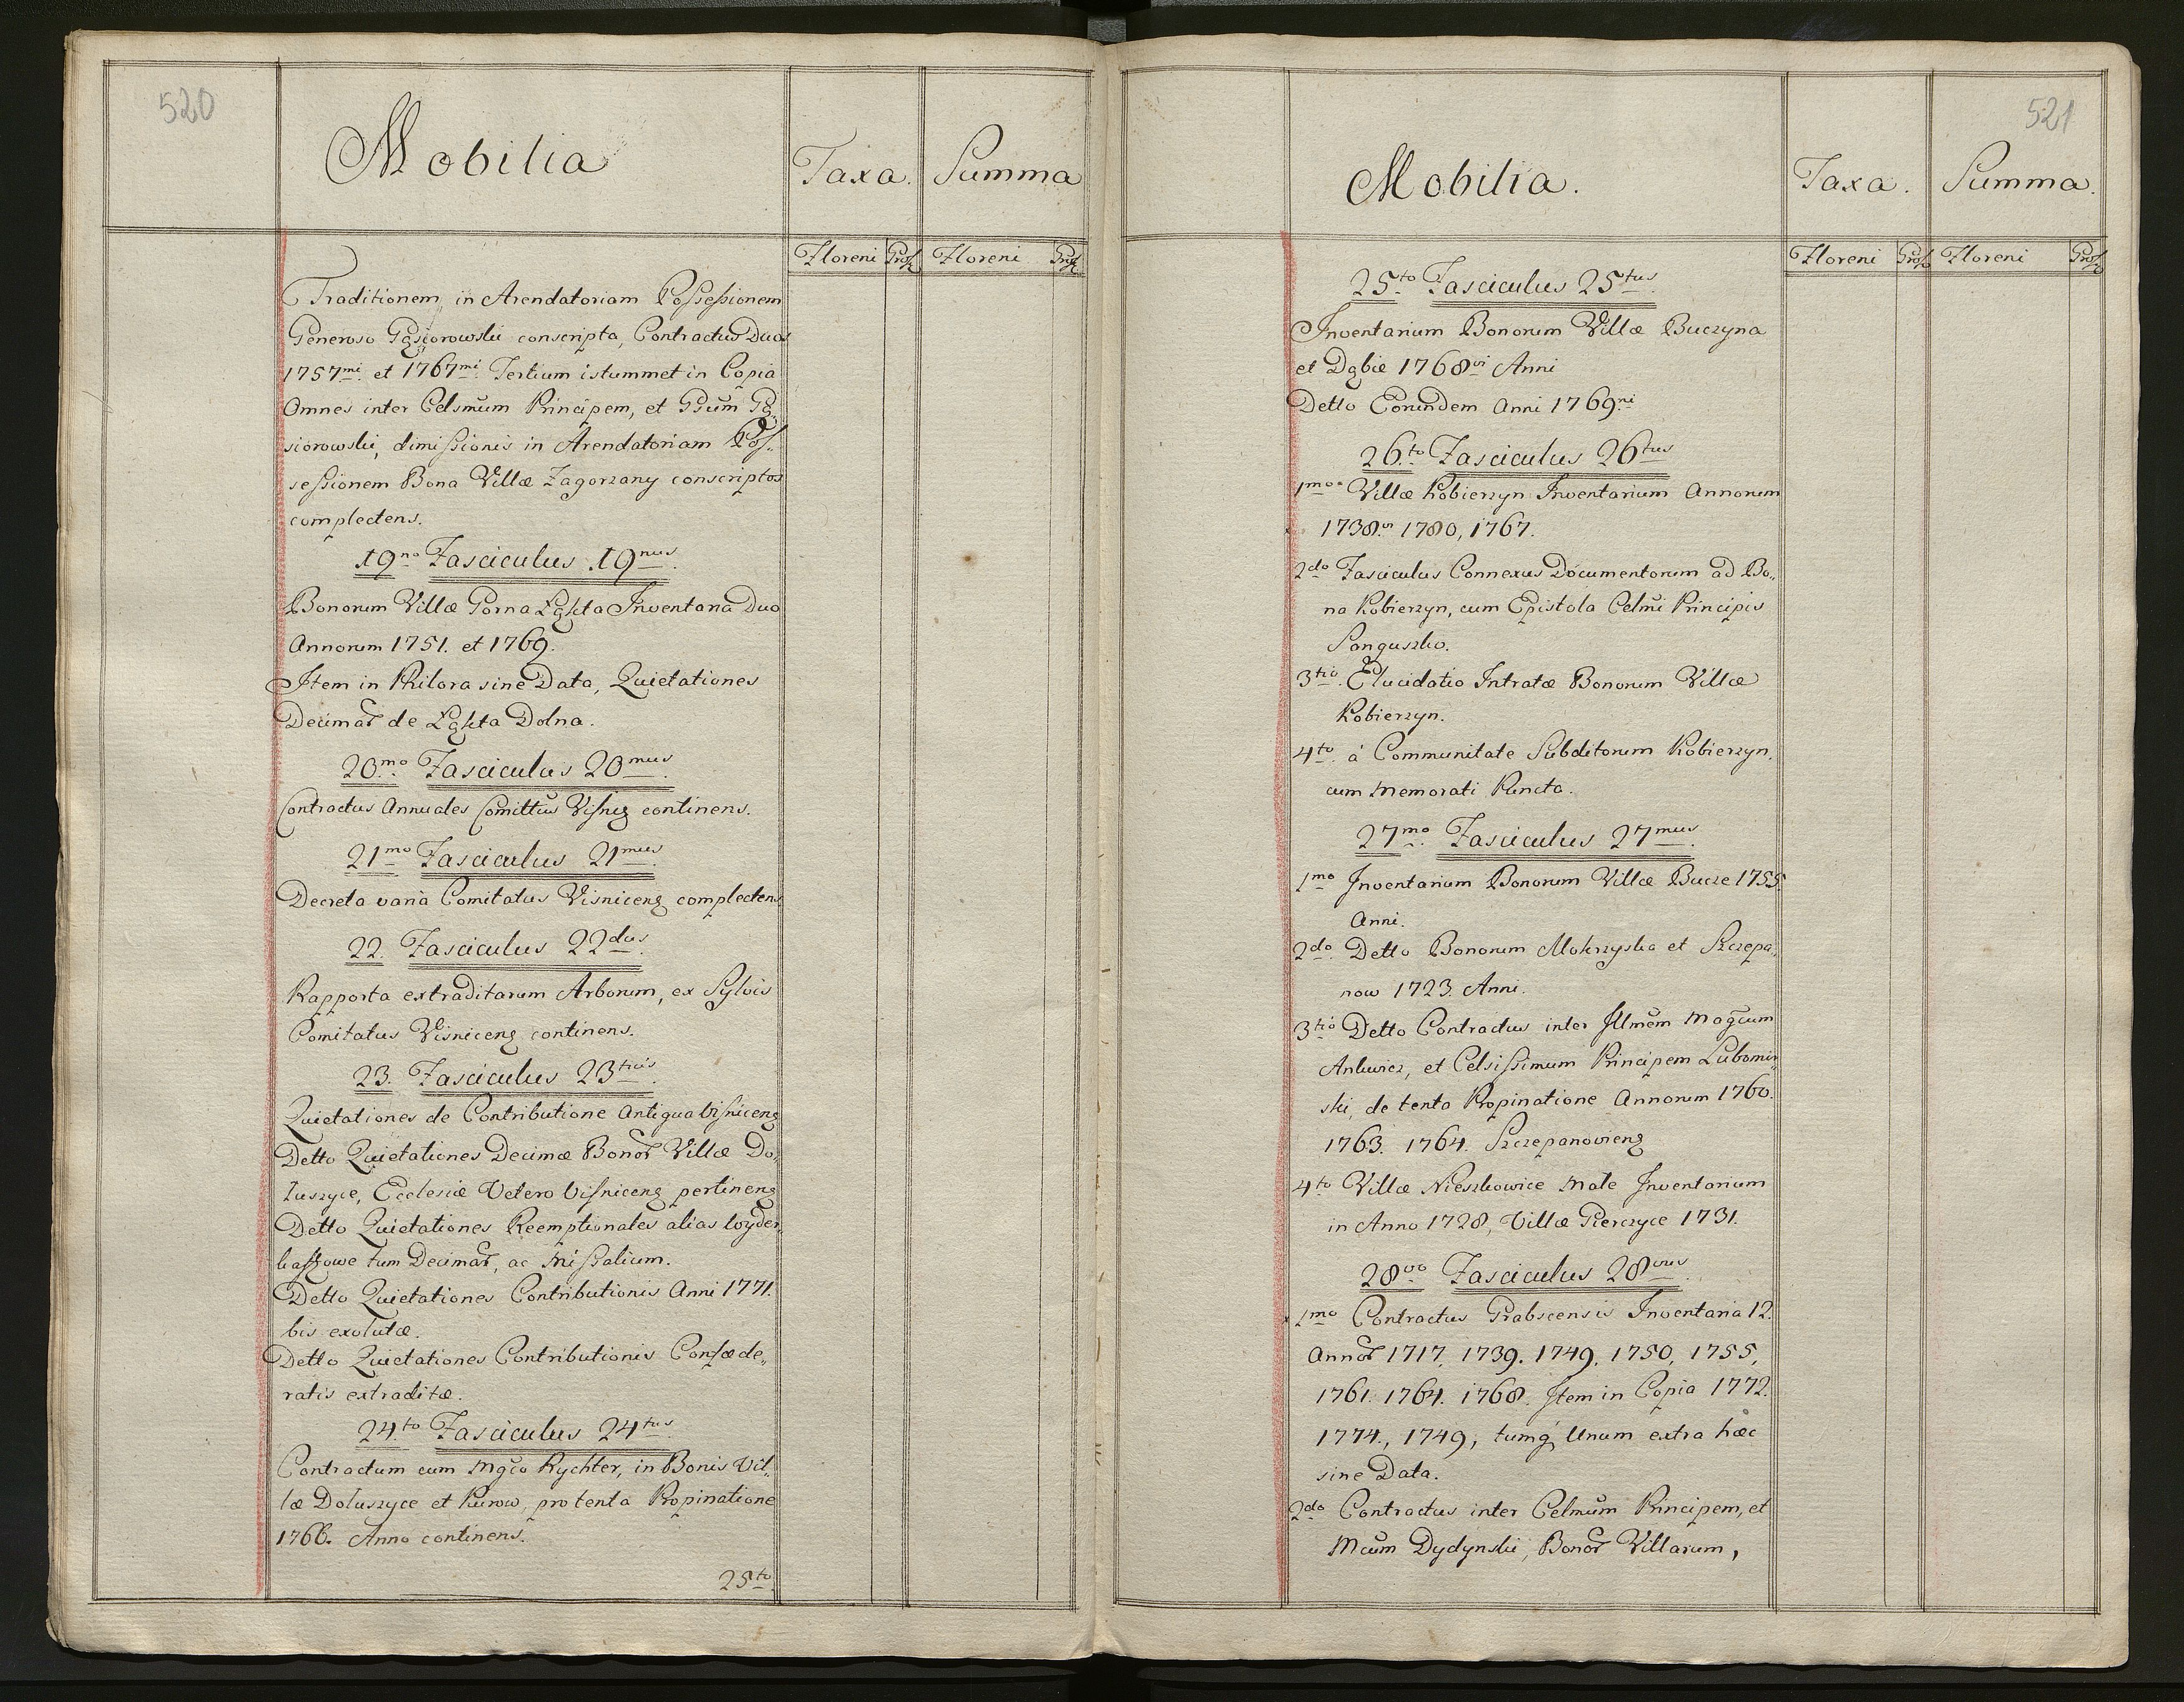 520
Mobilia
Taxa.
Summa
Floreni
Gros
Floreni
Gros
Traditionem in Arendatoriam Possessionem
Generoso Gąsiorowski conscripta, Contractus Duos
1757mi. et 1767mi. Tertium istummet in Copia
Omnes inter Celsmum Principem, et Gsum Gą„
siorowski, dimissionis in Arendatoriam Pos„
sessionem Bona Villæ Zagorzany conscriptos
complectens.
19no Fasciculus 19nus.
Bonorum Villæ Gorna Łąkta Inventaria Duo
Annorum 1751. et 1769.
Item in Philora sine Data, Quietationes
Decimar de Łąkta Dolna.
20mo. Fasciculus 20mus.
Contractus Annuales Comittus Visnig continens.
21mo Fasciculus 21mus.
Decreta varia Comitatus Visniceng complectens
22. Fasciculus 22dus.
Rapporta extraditarum Arborum, ex Sylvis
Comitatus Visniceng continens.
23. Fasciculus 23tius.
Quietationes de Contributione Antiqua Visniceng
Detto Quietationes Decimæ Bonor Villæ Do„
łuszyce, Ecclesiæ Vetero Visniceng pertineng
Detto Quietationes Reemptionales alias wyder„
kaffowe tum Decimar, ac Missalium.
Detto Quietationes Contributionis Anni 1771.
bis exolutæ.
Detto Quietationes Contributionis Confæde„
ratis extraditæ.
24to. Fasciculus 24tus.
Contractum cum Mgco Rychter, in Bonis Vil„
læ Dołuszyce et Kurow, pro tenta Propinatione
1766. Anno continens.
25to.
521
Mobilia.
Taxa.
Summa.
Floreni
Gros
Floreni
Gros
25to Fasciculus 25tus.
Inventarium Bonorum Villæ Buczyna
et Dąbie 1768vi Anni
Detto Eorundem Anni 1769ni
26to. Fasciculus 26tus
1mo. Villæ Kobierzyn Inventarium Annorum
1738. 1780, 1767.
2do Fasciculus Connexus Documentorum ad Bo„
na Kobierzyn, cum Epistola Celmi Principis
Sanguszko.
3tio. Elucidatio Intratæ Bonorum Villæ
Kobierzyn.
4to. á Communitate Subditorum Kobierzyn.
cum Memorati Puncta.
27mo. Fasciculus 27mus.
1mo Inventarium Bonorum Villæ Bucze 1755.
Anni.
2do. Detto Bonorum Mokrzyska et Szczepa„
now 1723. Anni.
3tio Detto Contractus inter Illmem Magcum
Ankwicz, et Celsissimum Principem Lubomir„
ski, de tenta Propinatione Annorum 1760.
1763. 1764. Szczepanovieng
4to Villæ Nieszkowice Małe Inventarium
in Anno 1728, Villæ Gierczyce 1731.
28vo Fasciculus 28vus.
1mo Contractus Grabscensis Inventaria 12.
Annor 1717, 1739. 1749, 1750, 1755,
1761. 1764. 1768. Item in Copia 1772.
1774., 1749, tumq Unum extra hæc
sine Data.
2do Contractus inter Celmum Principem, et
Mcum Dydynski, Bonor Villarum,